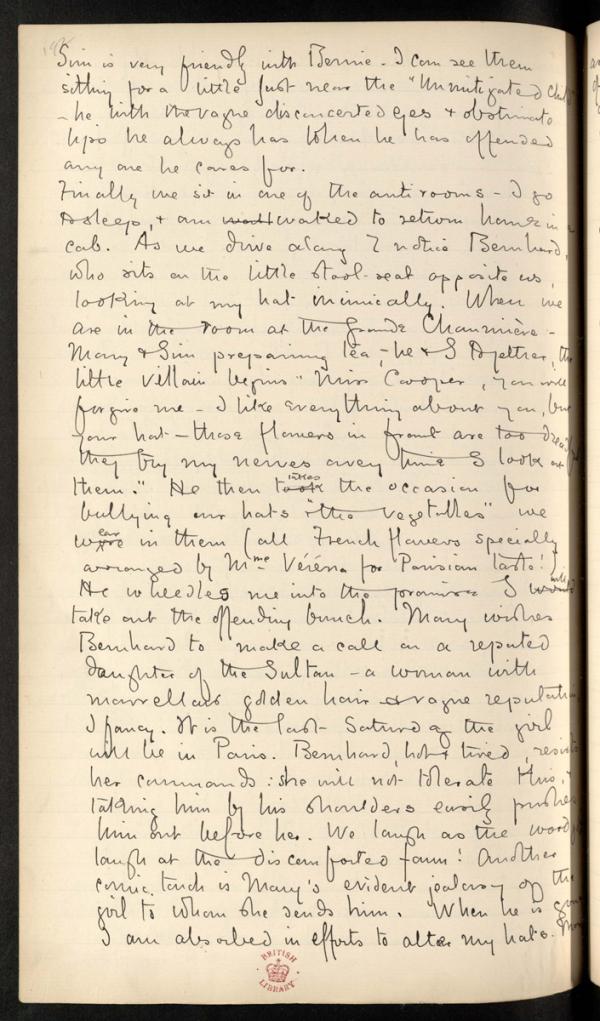 Sim is very friendly with Bernie - I can see them
sitting for a little just near the "Unmitigated Chi
- he with the vague disconcerted eyes & obstinate
lips he always has when he has offended
any one he cares for.
Finally we sit in one of the anti rooms - I go
asleep, & am waked to return home in a
cab. As we drive along I notice Bernhard,
who sits on the little stool-seat opposite us,
looking at my hat inimically. When we
are in the room at the Grande Chaumière -
Mary & Sim preparing tea, - he & I together, the
little villain begins "Miss Cooper, you will
forgive me - I like everything about you, but
your hat - those flowers in front are too dreadful
they try my nerves every time I look at
them." He then took takes the occasion for
bullying our hats "the vegetables" we
wear in them (all French flowers specially
arranged by Mme Véréna for Parisian taste!)
He wheedles me into the promise I will
take out the offending bunch. Mary wishes
Bernhard to make a call on a reputed
daughter of the Sultan - a woman with
marvellous golden hair & vague reputation
I fancy. It is the last Saturday the girl
will be in Paris. Bernhard, hot & tired, resists
her commands: she will not tolerate this, &
taking him by his shoulders easily pushes
him out before her. We laugh as the wood
laugh at the discomforted faun! Another
comic touch is Mary's evident jealousy of the
girl to whom she sends him. When he is gone
I am absorbed in efforts to alter my hats.
BRITISH
LIBRARY